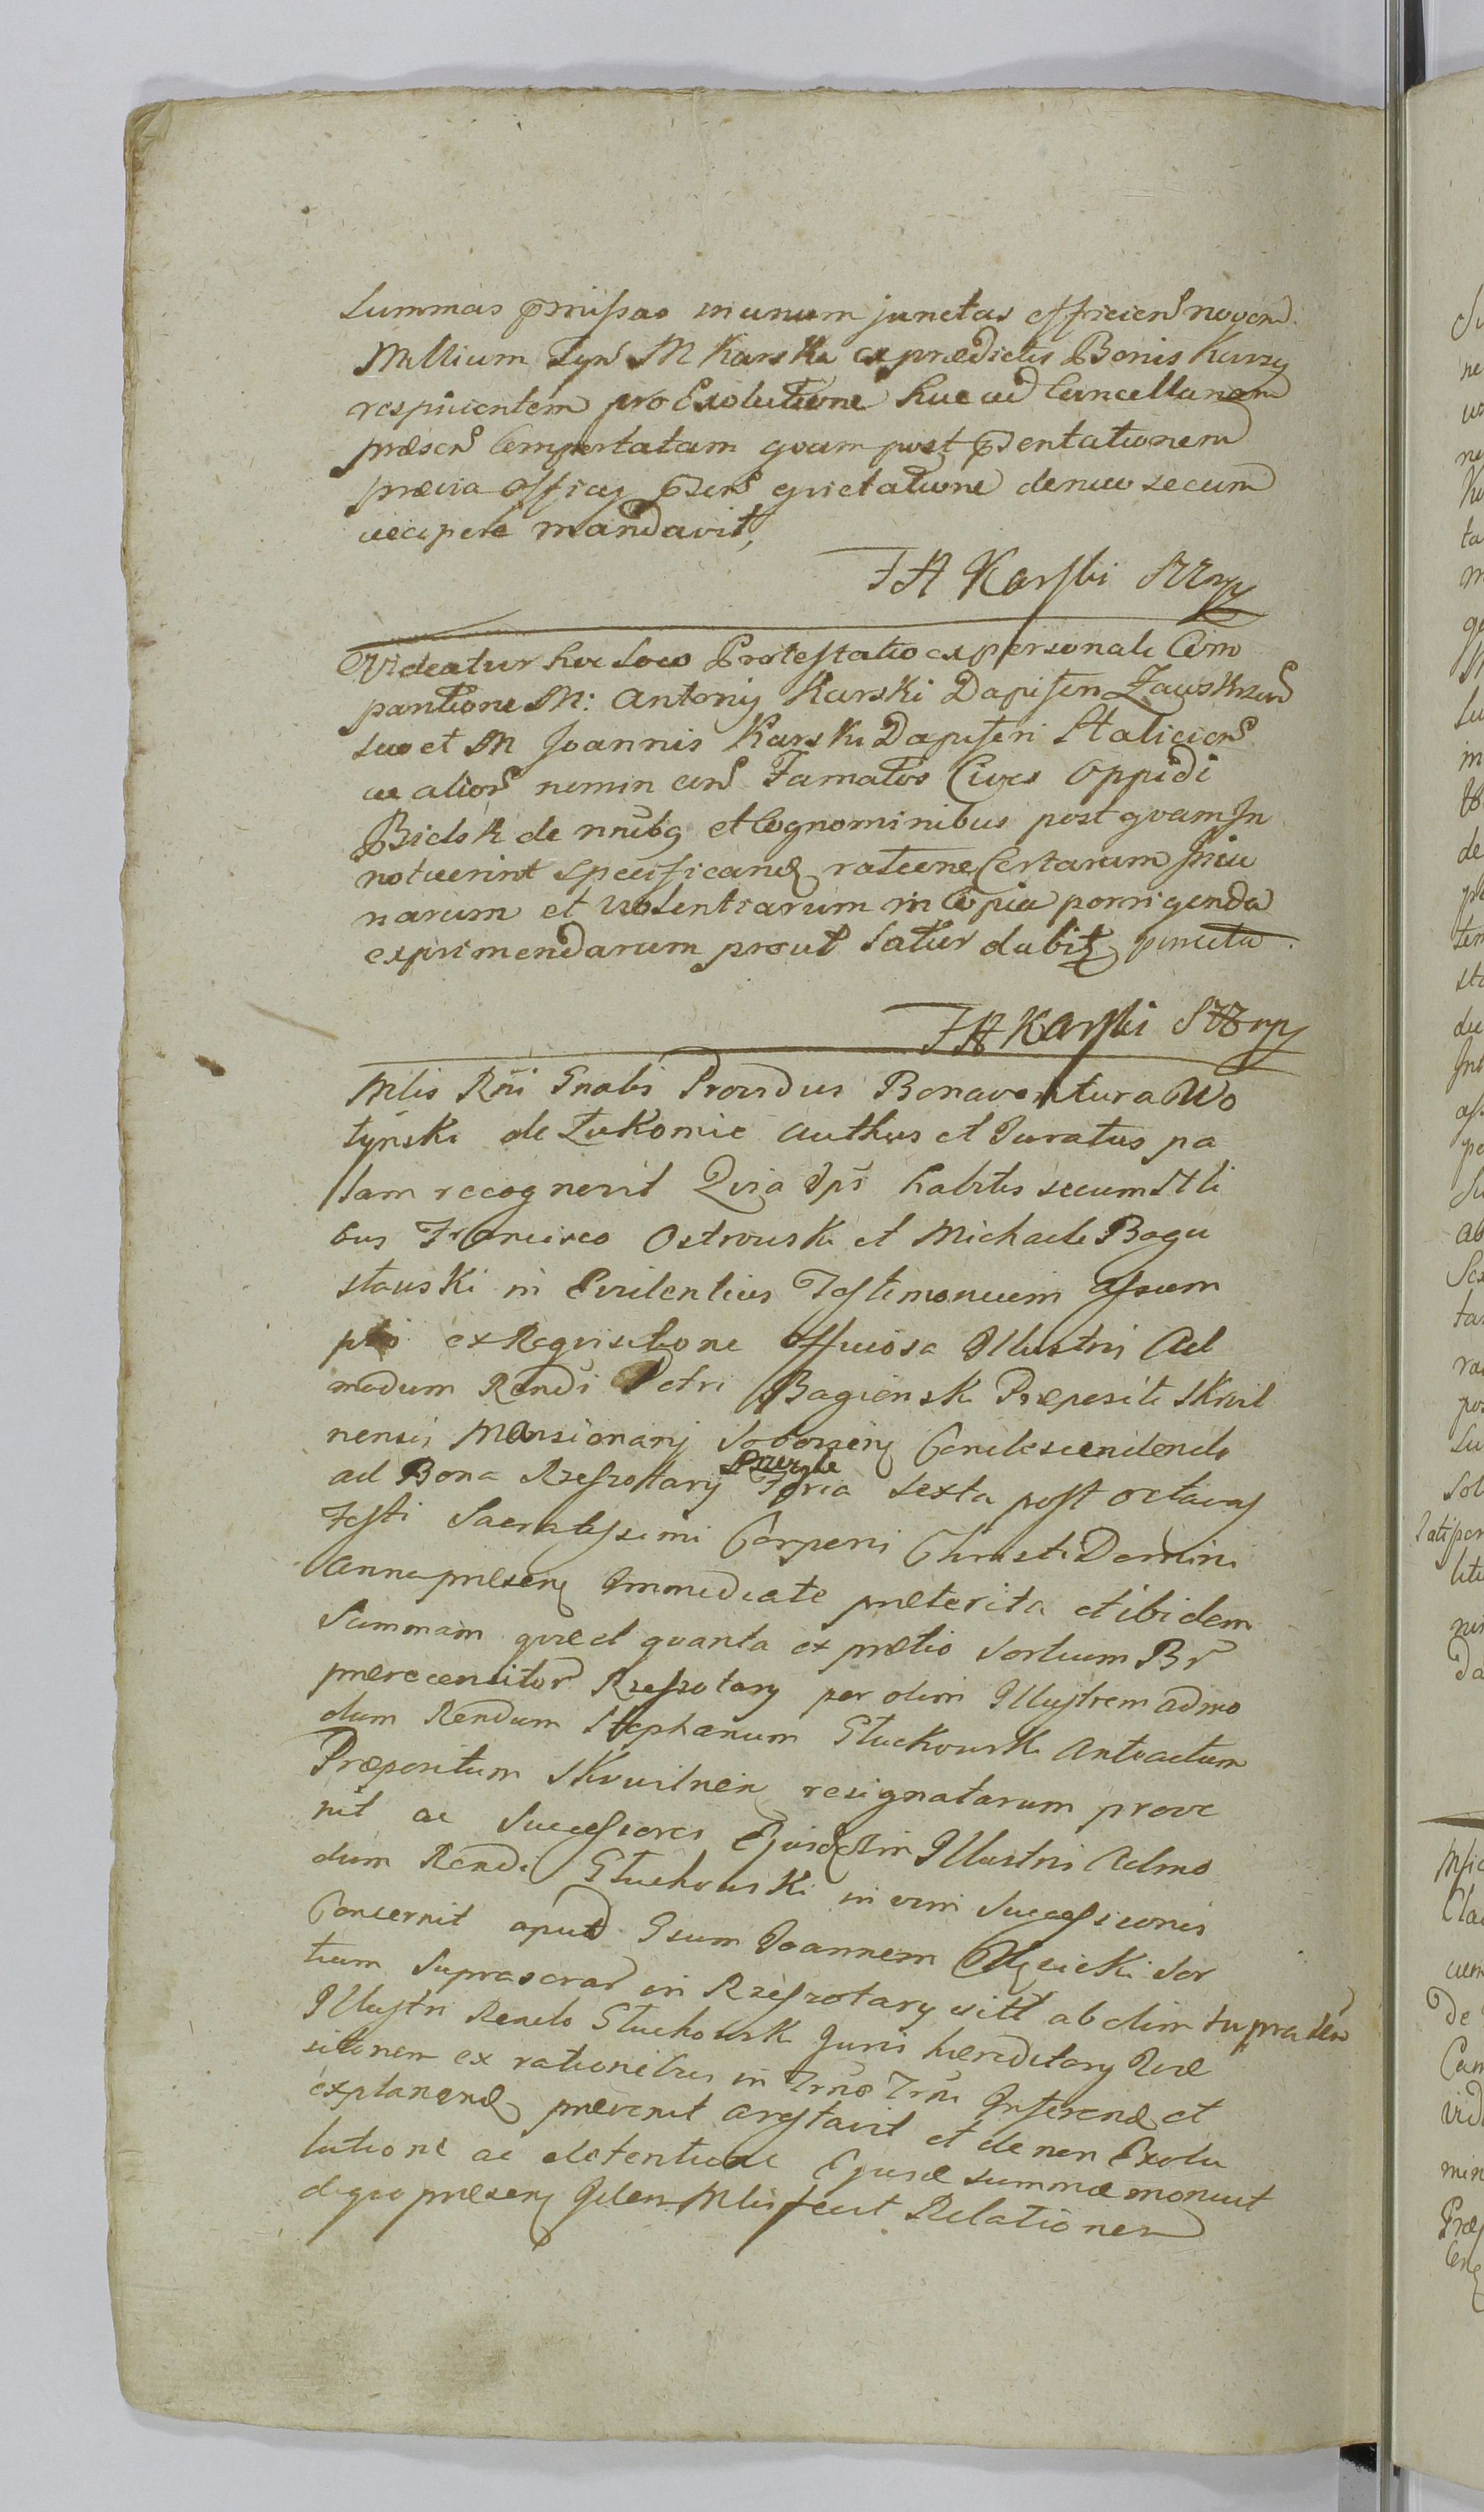 Summas p̄missas in unum junctas efficien̄ novem
Millium Tyn̄ M Karski ex prædictis Bonis Kurzy
respicientem pro Exolutione huc ad Cancellariam
præsen̄ Comportatam qvam post p̄sentationem
prævia officij p̄sen̄ qvietatione denuo secum
recipere mandavit,
J A Karski
Videatur hoc loco Protestatio ex personali Com
paritione M: Antonij Karski Dapiferi Zawskrzen̄
suo et M Joannis Karski Dapiferi Haliciens̄
ac alior̄ nomin con̄ Famatos Cives Oppidi
Bielsk de nn̄ibg et Cognominibus post qvam In
notuerint specificand ratione Certarum Inju
riarum et Violentiarum in Copia porrigenda
exprimendarum prout latius dabitz puncta
J A Karski
Mlis Rn̄i Gnalis Providus Bonaventura Wo
łynski de Łukomie authus et Juratus pa
lam recognovit Qvia Ips̄ habitis secum Nli
bus Francisco Ostrowski et Michaele Bogu
sławski in Evidentius Testimonium assum
ptis ex Reqvisitione officiosa Illustris Ad
modum Rendi Petri Bagiensk Præpositi Skwil
nensis Mansionarij Condescendendo
ad Bona Rzeszotary Feria sexta post octavas
Festi Sacratissimi Corporis Christi Domini
Anno præsenz Immediate præterita et ibidem
Summam qvæ et qvanta ex prætio Sortium Br̄
prærecensitor̄ Rzeszotary per olim Illustrem admo
dum Rendum Stephanum Głuchowski Anteactum
Præpositum Skwilnen resignatarum prove
nit ac Successores Ejusdem Illustris Admo
dum Rendi Głuchowski in vim Successionis
Concernit apud Gsum Joannem sor
tium Suprascrar̄ in Rzeszotary vill ab olim supra
Illustri Rendo Głuchowsk Juris hæreditary
sitionem ex rationibus in Trn̄o Trn̄i Inferend et
explanend prævenit arestavit et de non Exolu
tione ac detentione Ejusd summæ monuit
de qvo præsenz Iden Mlis fecit Relationem